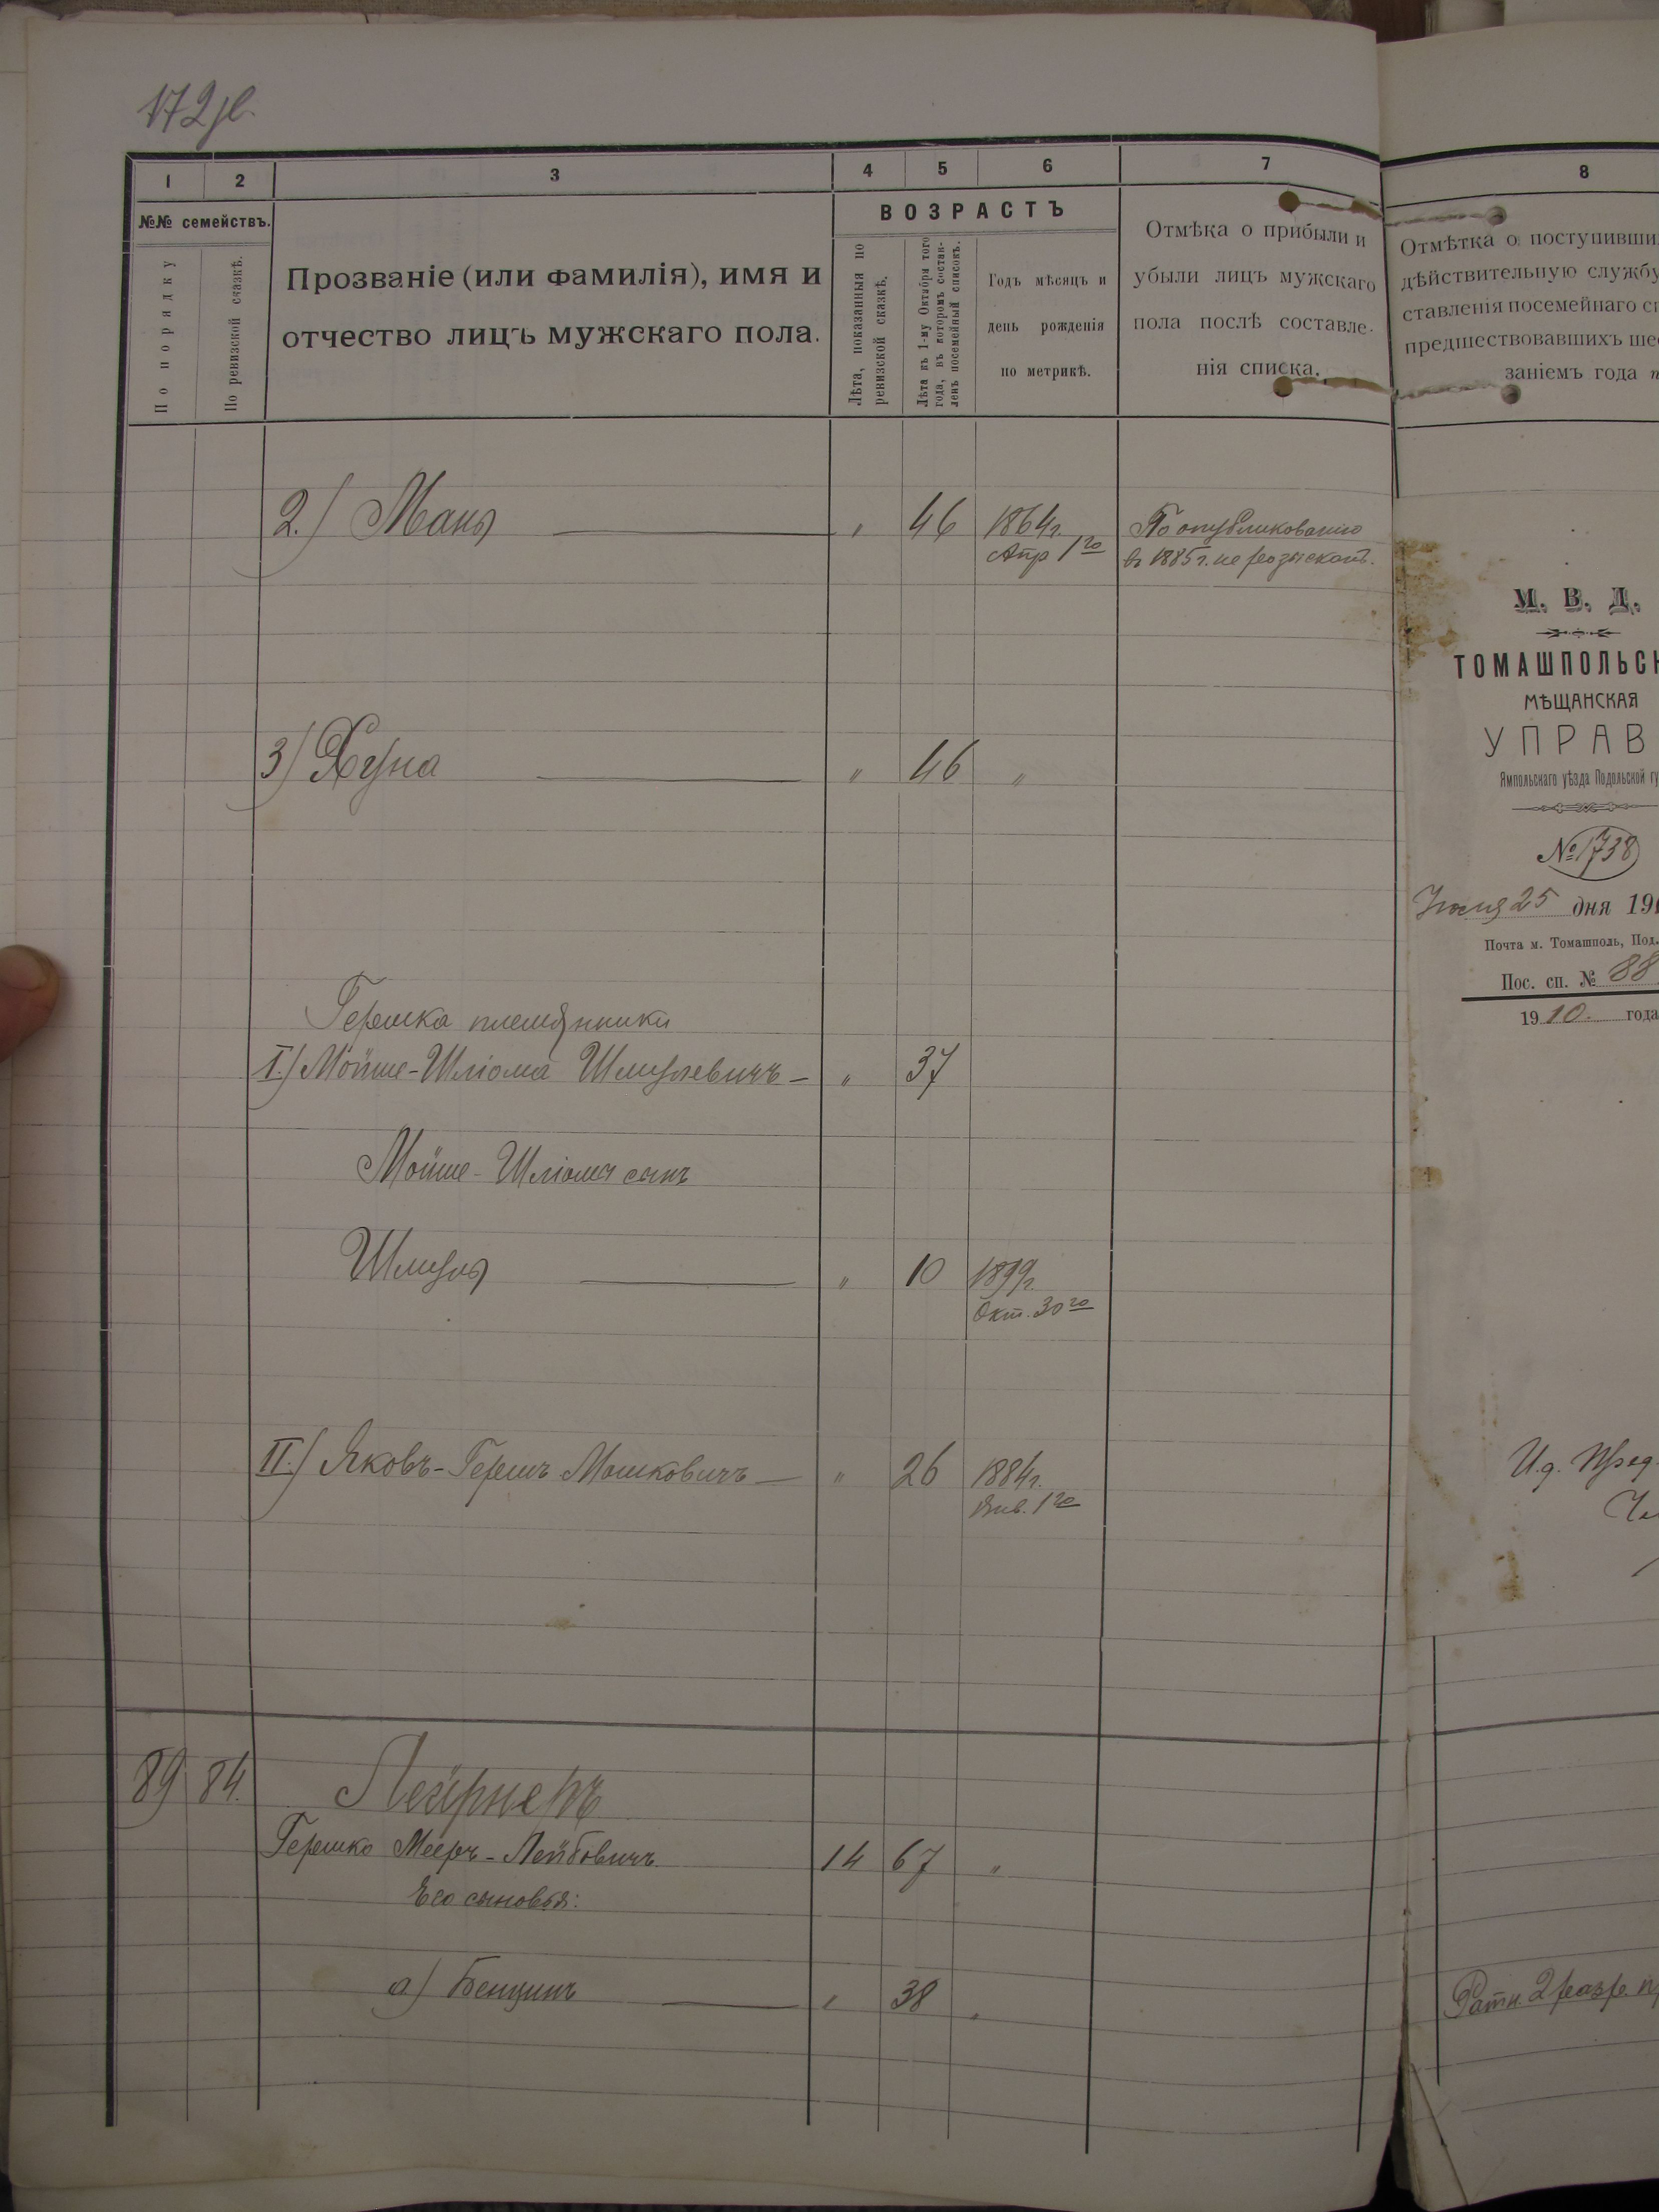 172 л.
1 2 3 4 5 6 7
№№ семействъ.
По порядку
По ревизской сказкѣ.
Прозваніе (или фамилія), имя и
отчество лицъ мужскаго пола.
ВОЗРАСТЪ
Лѣта, показанныя по
ревизской сказкѣ.
Лѣта къ 1-му Октября того
года, въ которомъ состав-
ленъ посемейный списокъ.
Годъ мѣсяцъ и
день рожденія
по метрикѣ.
Отмѣка о прибыли и
убыли лицъ мужскаго
пола послѣ составле-
нія списка.
2.) Маня " 46 1864г. По опубликованію
Апр 1го въ 1885г. не розысканъ.
3) Хуна " 46 "
Гершка племянники
I.) Мойше-Шліома Шмулевичъ - " 37
Мойше-Шліома сынъ
Шмуля " 10 1899г.
Окт. 30го
II.) Яковъ-Гершъ Мошковичъ - " 26 1884г.
Янв. 1го
89 84. Лейрнеръ
Гершко Мееръ-Лейбовичъ. 14 67 "
Его сыновья:
а) Бенцинъ " 38 "
8
Отмѣтка о поступивши
дѣйствительную службу
ставленія посемейнаго сп
предшествовавшихъ шес
заніемъ года п
М. В. Д.
ТОМАШПОЛЬСК
МѢЩАНСКАЯ
УПРАВ
Ямпольскаго уѣзда Подольской гу
№ 1738
25 дня 19
Почта м. Томашполь, Под.
Пос. сп. № 88
1910. года
И.д. Пред.
Ратн. 2 разр.